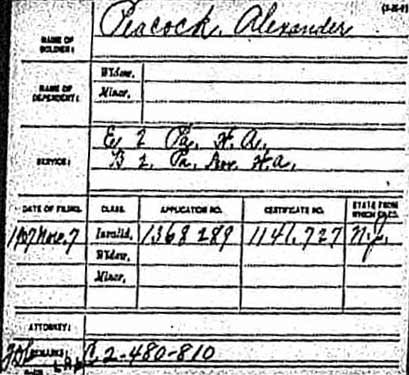 (3-26-01
Peacock, Alexander
NAME OF
SOLDIER:
NAME OF
DEPENDENT:
Widow,
Minor,
SERVICE:
E, 2 Pa. H. A.,
B 2, Pa. Prov. H. A.
DATE OF FILING. CLASS. APPLICATION NO. CERTIFICATE NO. STATE FROM
WHICH FILED.
1907 Nov. 7 Invalid, 1368289 1141.727 N.J.
Widow,
Minor,
ATTORNEY:
REMARKS: C 2-480-810